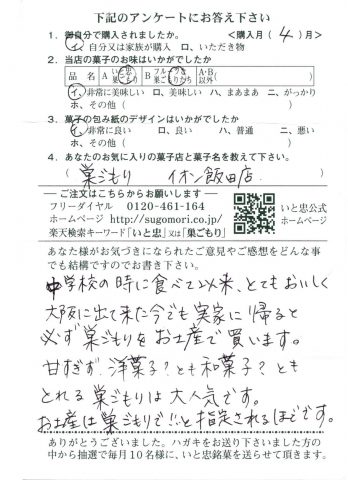 下記のアンケートにお答え下さい
1. 御自分で購入されましたか。　<購入月(4)月>
イ、自分又は家族が購入　ロ、いただき物
2. 当店の菓子のお味はいかがでしたか
品名　A いと忠 巣ごもり　B フルーツ 巣ごもりたち　A・B以外
イ、非常に美味しい　ロ、美味しい　ハ、まあまあ　ニ、がっかり
ホ、その他(　　)
3. 菓子の包み紙のデザインはいかがでしたか
イ、非常に良い　ロ、良い　ハ、普通　ニ、悪い
ホ、その他(　　)
4. あなたのお気に入りの菓子店と菓子名を教えて下さい。
巣ごもり　イオン飯田店.
ご注文はこちらからお願いします
フリーダイヤル　0120-461-164
ホームページ　http://sugomori.co.jp/
楽天検索キーワード「いと忠」又は「巣ごもり」
いと忠公式
ホームページ
あなた様がお気づきになられたご意見やご感想をどんな事
でも結構ですのでお書き下さい。
中学校の時に食べて以来、とてもおいしく
大阪に出て来た今でも実家に帰ると
必ず巣ごもりをお土産で買います。
甘すぎず、洋菓子?とも和菓子?とも
とれる巣ごもりは大人気です。
お土産は巣ごもりで!!と指定されるほどです。
ありがとうございました。ハガキをお送り下さいました方の
中から抽選で毎月10名様に、いと忠銘菓を送らせて頂きます。